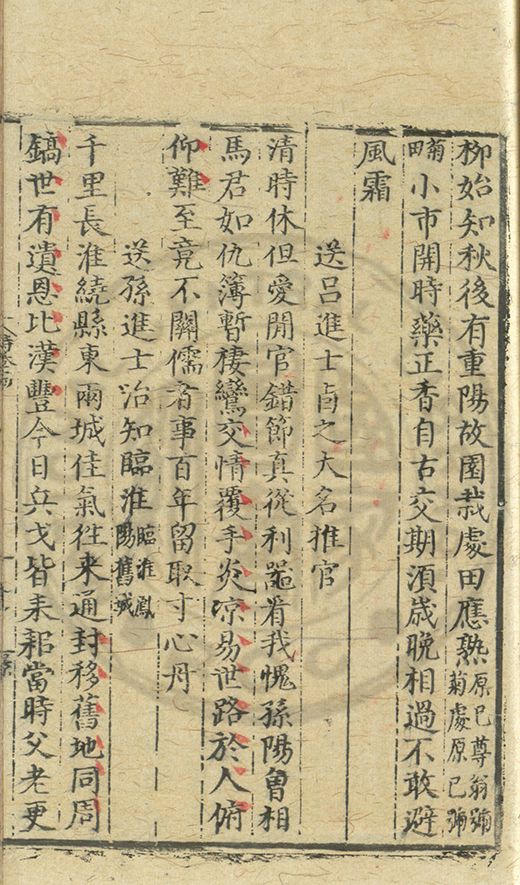 柳始知秋後有重陽故園栽處田應熟原巳尊翁號菊處原巳號
菊田小市開時藥正香自古交期須歲晚相過不敢避
風霜
送呂進士卣之大名推官
清時休但愛閒官錯節真從利器看我愧孫陽曾相
馬君如仇簿暫棲鸞交情覆手炎凉易世路於人俯
仰難至竟不關儒者事百年留取寸心丹
送孫進士治知臨淮臨淮鳳陽舊城
千里長淮繞縣東兩城佳氣徃来通封移舊地同周
鎬世有遺恩比漢豐今日兵戈皆未詔當時父老更